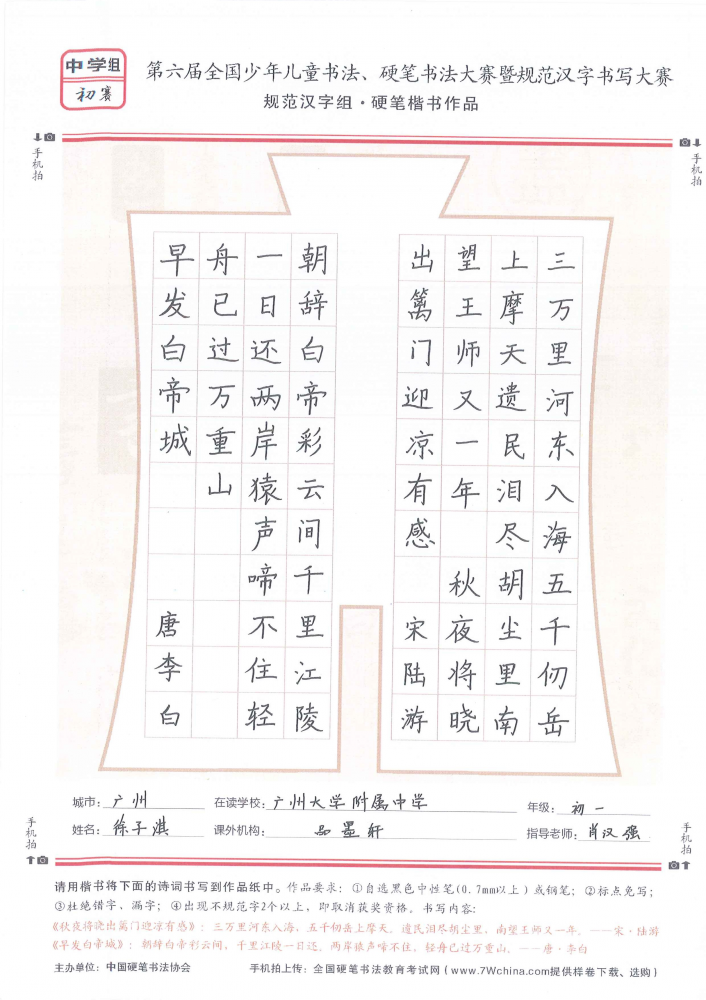 中学组
初赛
第六届全国少年儿童书法、硬笔书法大赛暨规范汉字书写大赛
规范汉字组·硬笔楷书作品
手机拍
手机拍
三万里河东入海五千仞岳
上摩天遗民泪尽胡尘里南
望王师又一年 秋夜将晓
出篱门迎凉有感 宋陆游
朝辞白帝彩云间千里江陵
一日还两岸猿声啼不住轻
舟已过万重山
早发白帝城 唐李白
城市：广州 在读学校：广州大学附属中学 年级：初一
姓名：徐子淇 课外机构：品墨轩 指导老师：肖汉强
手机拍
手机拍
请用楷书将下面的诗词书写到作品纸中。作品要求：①自选黑色中性笔(0.7mm以上)或钢笔；②标点免写；
③杜绝错字、漏字；④出现不规范字2个以上，即取消获奖资格。书写内容：
《秋夜将晓出篱门迎凉有感》：三万里河东入海，五千仞岳上摩天。遗民泪尽胡尘里，南望王师又一年。——宋·陆游
《早发白帝城》：朝辞白帝彩云间，千里江陵一日还。两岸猿声啼不住，轻舟已过万重山。——唐·李白
主办单位：中国硬笔书法协会 手机拍上传：全国硬笔书法教育考试网（www.7Wchina.com提供样卷下载、选购）